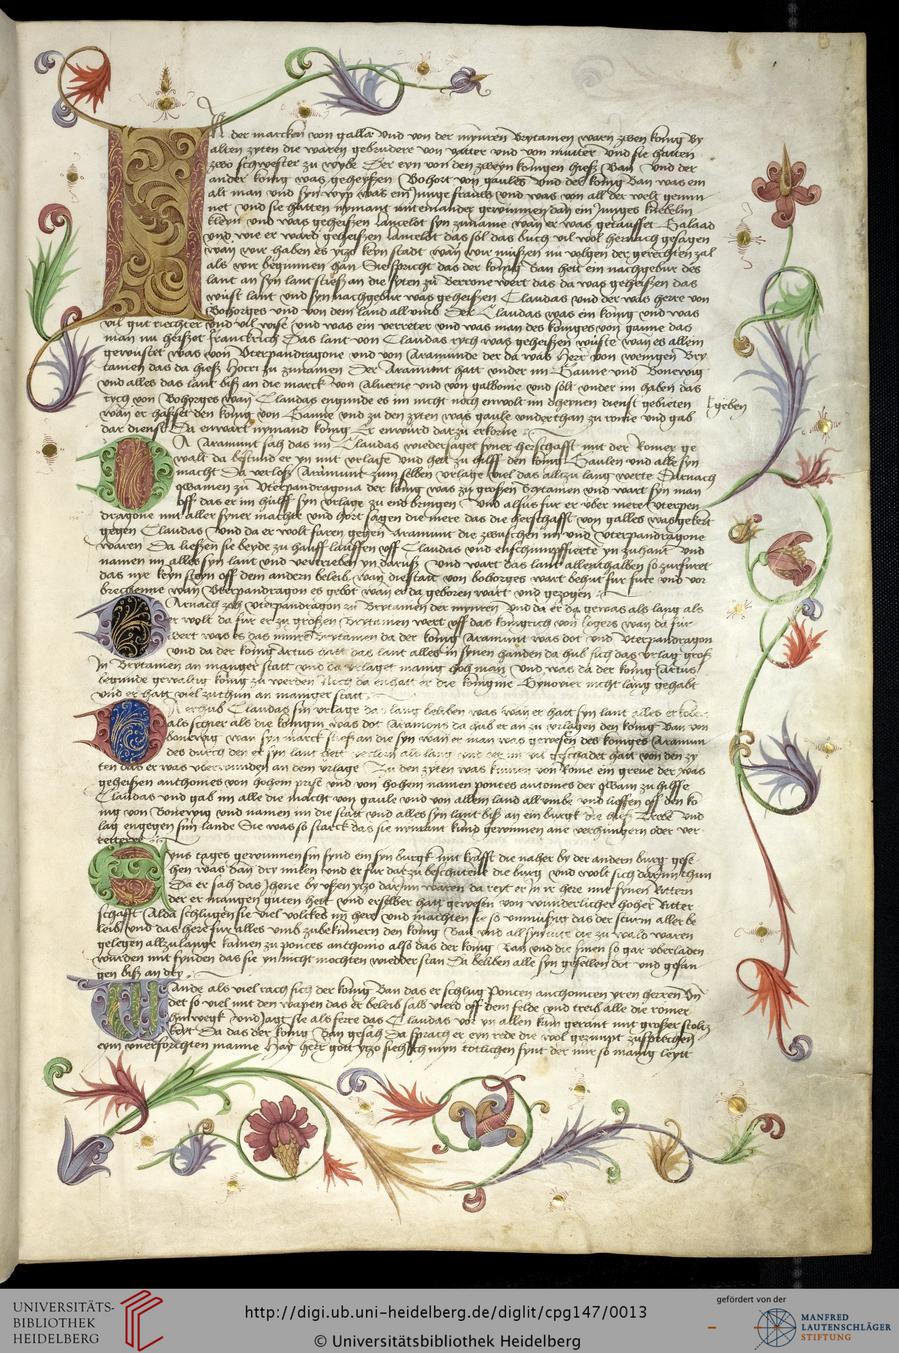 In der marcken von galla vnd von der mynren Brytanien warn zwen konig by
alten zyten die waren gebrudere von vatter vnd von mutter vnd sie hatten
zwo schwester zu wybe Der eyn von den zweyn konigen hieß Ban vnd der
ander konig was geheyssen Bohort von gaules vnd der konig Ban was ein
alt man vnd syn wyp was ein junge frauch vnd was von all der welt gemin
net vnd sie hatten nymant miteinander gewunnen dan ein junges kindelin
klein vnd was geheissen Lancelot syn zuname wan er was getauffet Galaad
vnd wie er ward geheissen Lancelot das sol das buch vil wol hernach gesagen
wan wir haben es yczo keyn stadt wan wir mußen nu volgen der gerechten zal
als wir begunnen han Sie spricht das der konig Ban hett ein nachgebur des
lant an syn lant stieß an die syten zu Berrone wert das da was geheissen das
wust lant vnd syn nachgebur was geheissen Claudas vnd der was herre von
Bohorges vnd von dem land all vmb Der Claudas was ein konig vnd was
vil gut riechter vnd vil wise vnd was ein verreter vnd was man des koniges von ganne das
man nu heisset franckrich Das lant von Claudas rych was geheissen wuste wan es allein
gewustet was von Vterpandragone vnd von Aramunde der da was herr von wenigen Bry
tanien das da hieß Hoccz zu zunamen Der Aramunt hatt vnder im Ganne vnd Bonewig
vnd alles das lant biß an die marck von Aluerne vnd von gallonie vnd solt vnder im haben das
rych von Bohorges wan Claudas engunde es im nicht noch enwolt im dheynen dienst gebieten
geben
wan er hasset den konig von Ganne vnd zu den zyten was gaule vnderthan zu rome vnd gab
dar dienst Da enwart nymand konig Er enwurd darzu erkorne
DA Aramunt sah das im Claudas wiedersaget syner herschafft mit der Romer ge
walt da bestund er yn mit vrlage vnd hett zu hilff den konig Gaulen vnd alle syn
macht Da verloß Aramunt zum selben vrlage viel das allzu lang werte Darnach
qwamen zu Vterpandragone der konig was zu grossen Brytanien vnd wart syn man
off das er im hulff syn vrlage zu end bringen vnd alsus fur er vber mere Vterpen
dragone mit aller syner machte vnd hort sagen die mere das die herschafft von galles was gekert
gegen Claudas vnd da er wolt faren gegen Aramunt die zwuschen im vnd Vterpandragone
waren Da ließen sie beyde zu hauff lauffen vff Claudas vnd enschumpffierte yn zuhant vnd
namen im alles syn lant vnd vertrieben yn daruß vnd wart das lant allenthalben so zurfuret
das nye keyn steyn off dem andern beleib wan die statt von bohorges wart behut fur fure vnd vor
brechenne wan Vterpandragon es gebot wan er da geboren wart vnd gezogen
DArnach zoh Vterpandragon zu Brytanien der mynren vnd da er da gewas als lang als
er wolt da fur er zu großen Brytanien wert vff das konigrich von Logres wan da fur
wert was es das minre Brytanien da der konig Aramunt was dot vnd Vterpandragon
vnd da der konig Artus hatt das lant alles in synen handen da hub sich das vrlag groß
In Brytanien an maniger statt vnd da vrlaget manig hoh man vnd was da der konig Artus
begunde gewaltig konig zu werden Auch da enhatt er die konigine Genovier nicht lang gehabt
vnd er hatt viel zuthun an maniger statt
Claudas sin vrlage das lang beliben was wan er hatt syn lant alles erkober
also schier als die konigin was dot Aramons da hub er an zu vrlagen den konig Ban von
bonewig wan syn marck stieß an die syn wan er man was gewesen des koniges Aramun
des durch den er syn lant hett verlorn als lang vnd der im vil geschadet hatt von den zy
ten das er was vberwunden an dem vrlage Zu den zyten was kumen von Rome ein greue der was
geheissen anthonies von hohem prise vnd von hohem namen ponces antonies der qwam zu hilffe
Claudas vnd gab im alle die macht von gaule vnd von allem land all vmbe vnd lieffen off den ko
nig von Bonewig vnd namen im die statt vnd alles syn lant biß an ein burgk die hieß Trebe vnd
lag engegen sim lande Sie was so starck das sie nymant kund gewinnen ane verhungern oder ver
retterei
EYns tages gewunnen sin fynd ein syn burgk mit krafft die naher by der andern burg gese
hen was dan dry milen vnd er fur dar zu beschuten die burg vnd wolt sich darinn thun
Da er sah das jhene by vßen yczo darinn waren da reyt er in ir here mit synen Rittern
der er mangen guten hett vnd er selber hatt gewesen von wunderlicher hoher Ritter
schafft Alda schlugen sie viel volckes im here vnd machten sie so vnmußig das der sturm aller be
leib vnd das here fur alles vmb zu bekumern den konig Ban vnd all syn lute die zu wald waren
gelegen allzulange kamen zu ponces anthonio also das der konig Ban vnd die sinen so gar vberladen
wurden mit fynden das sie yn nicht mochten wiedder stan Da beliben alle syn gesellen dot vnd gefan
gen biß an dry
WAnde als viel rach sich der konig Ban das er schlug Poncen anthonien yren herren vnd
det so viel mit den wapen das er beleib salb vierd off dem felde vnd treib alle die romer
hinwegk vnd jagt sie als ferre das Claudas vor yn allen kam gerant mit großer stolcz
heyt Da das der konig Ban gesah da sprach er eyn rede die wol gezimpt zusprechen
eym vnerforchten manne Hay herr gott yczo sieh ich myn totlichen fynt der mir so manig leytt
UNIVERSITÄTS-
BIBLIOTHEK
HEIDELBERG
http://digi.ub.uni-heidelberg.de/diglit/cpg147/0013
© Universitätsbibliothek Heidelberg
gefördert von der
MANFRED
LAUTENSCHLÄGER
STIFTUNG